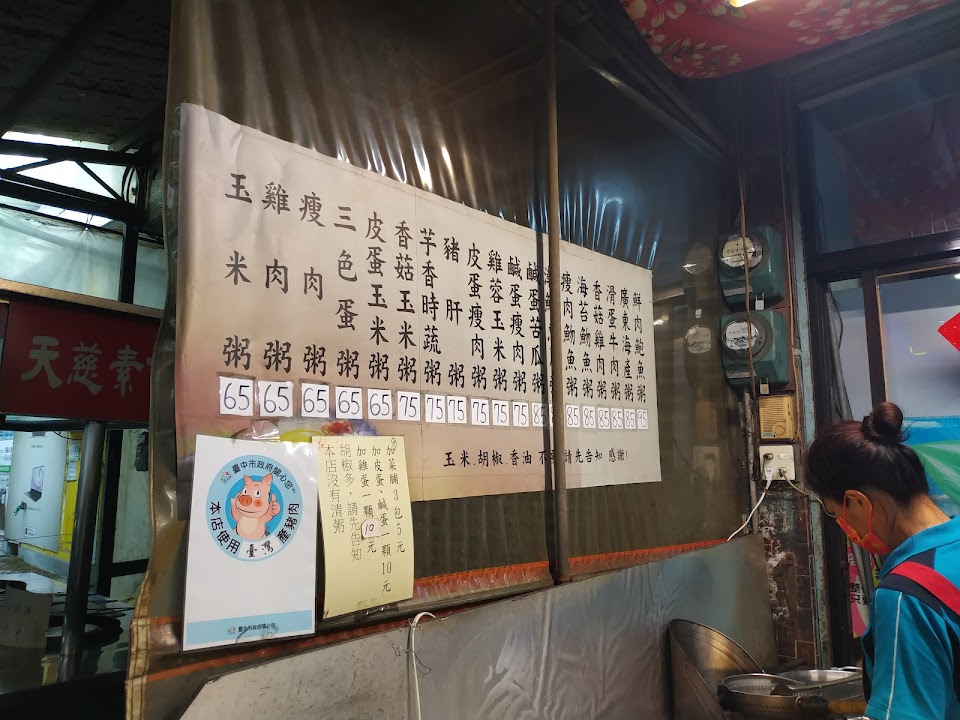 玉米粥 65
雞肉粥 65
瘦肉粥 65
三色蛋粥 65
皮蛋玉米粥 65
香菇玉米粥 75
芋香時蔬粥 75
豬肝粥 75
皮蛋瘦肉粥 75
雞蓉玉米粥 75
鹹蛋瘦肉粥 75
鹹蛋苦瓜粥 85
瘦肉魩魚粥 85
海苔魩魚粥 85
香菇雞肉粥 85
滑蛋牛肉粥 85
廣東海產粥 85
鮮肉鮑魚粥
玉米.胡椒.香油 不 請先告知 感謝!
加菜脯3包5元
加皮蛋、鹹蛋一顆10元
加雞蛋一顆10元
胡椒多,請先告知
本店沒有清粥
臺中市政府關心您
本店使用臺灣產豬肉
臺中市政府關心您
天慈素